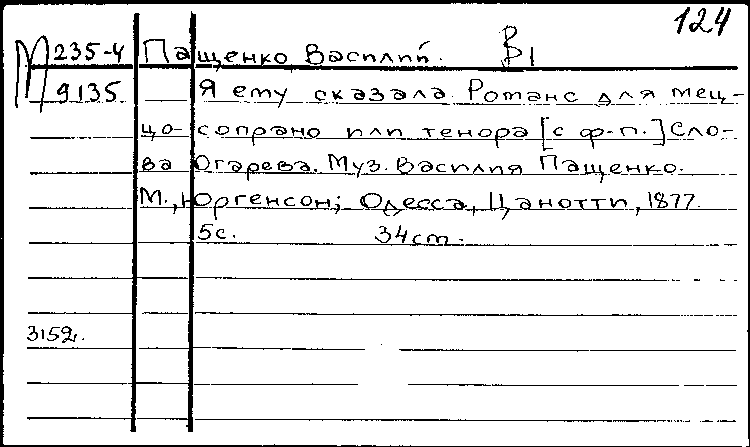 124
М 235-4 Пащенко Василий. В1
9135 Я ему сказала. Романс для мец-
цо-сопрано или тенора [с ф-п.] Сло-
ва Огарева. Муз. Василия Пащенко.
М., Юргенсон; Одесса, Цанотти, 1877.
5с. 34см.
3152г.